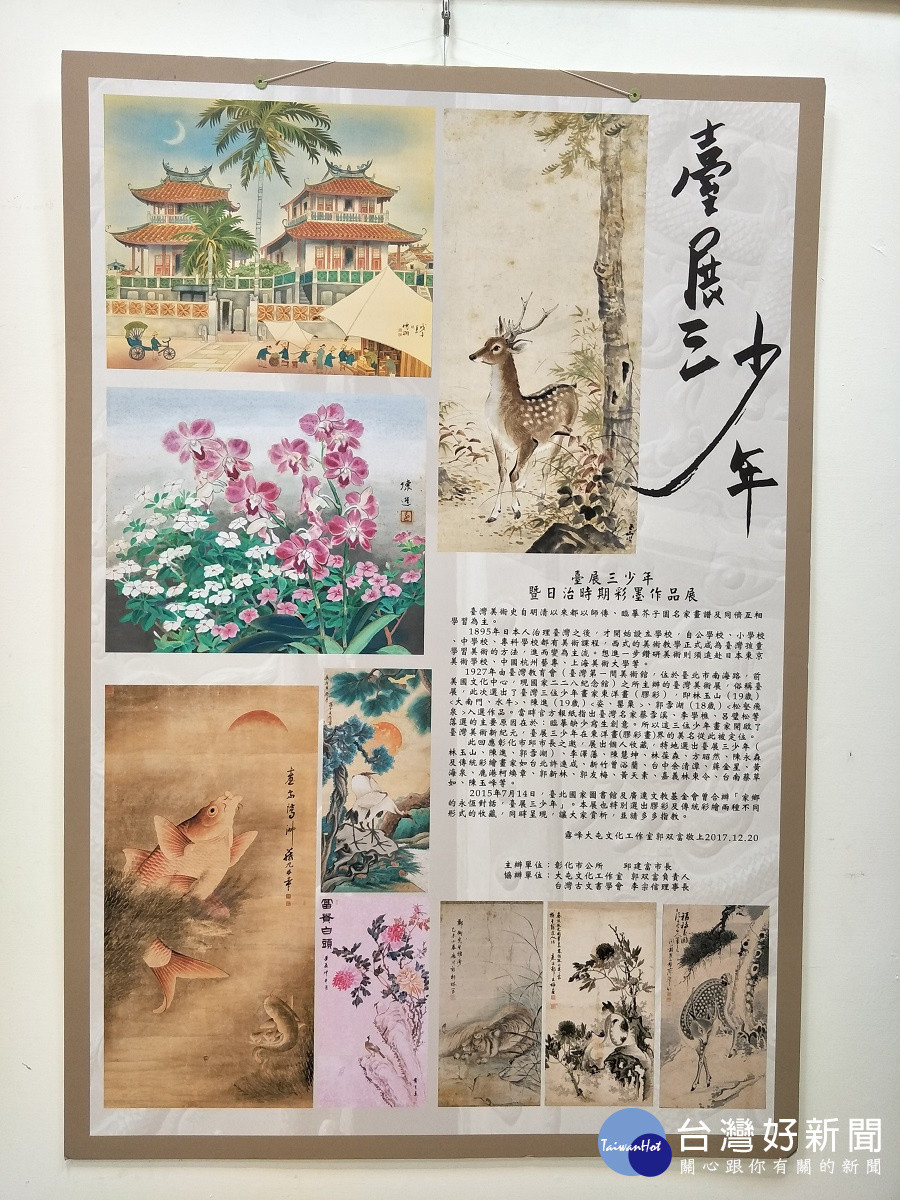 臺展三少年
陳進
臺展三少年
暨日治時期彩墨作品展
臺灣美術史自明清以來都以師傳、臨摹芥子園名家畫譜及同儕互相
學習為主。
1895年日本人治理臺灣之後,才開始設立學校,自公學校、小學校
、中學校、專科學校都有美術課程,西式的美術教學正式成為臺灣孩童
學習美術的方法,進而變為主流。想進一步鑽研美術則須遠赴日本東京
美術學校、中國杭州藝專、上海美術大學等。
1927年由臺灣教育會(臺灣第一間美術館,位於臺北市南海路,前
美國文化中心,現國家二二八紀念館)之所主辦的臺灣美術展,俗稱臺
展,此次選出了臺灣三位少年畫家東洋畫(膠彩),即林玉山(19歲)
<大南門、水牛>、陳進(19歲)<姿、罌粟>、郭雪湖(18歲)<松壑飛
泉>入選作品。當時官方報紙指出臺灣名家蔡雪溪、李學樵、呂璧松等
落選的主要原因在於:臨摹缺少寫生創意。所以這三位少年畫家開啟了
臺灣美術新紀元,臺展三少年在東洋畫(膠彩畫)界的美名從此被定位。
此回應彰化市邱市長之邀,展出個人收藏,特地選出臺展三少年(
林玉山、陳進、郭雪湖)、李澤藩、陳慧坤、林葆森、方昭然、陳永森
及傳統彩繪畫家如台北許新進成、新竹曾浴蘭、台中余清潭、蔣金星、黃
海泉、鹿港柯煥章、北郭新林、郭友梅、黃天素、嘉義林東令、台南蔡草
如、陳玉峰等。
2015年7月14日,臺北國家圖書館及廣達文教基金會曾合辦「家鄉
的永恆對話,臺展三少年」。本展也特別選出膠彩及傳統彩繪兩種不同
形式的收藏,同時呈現,讓大家賞析,並請多多指教。
霧峰大屯文化工作室郭双富敬上2017.12.20
主辦單位:彰化市公所 邱建富市長
協辦單位:大屯文化工作室 郭双富負責人
台灣古文書學會 李宗信理事長
富貴白頭
TaiwanHot
台灣好新聞
關心跟你有關的新聞